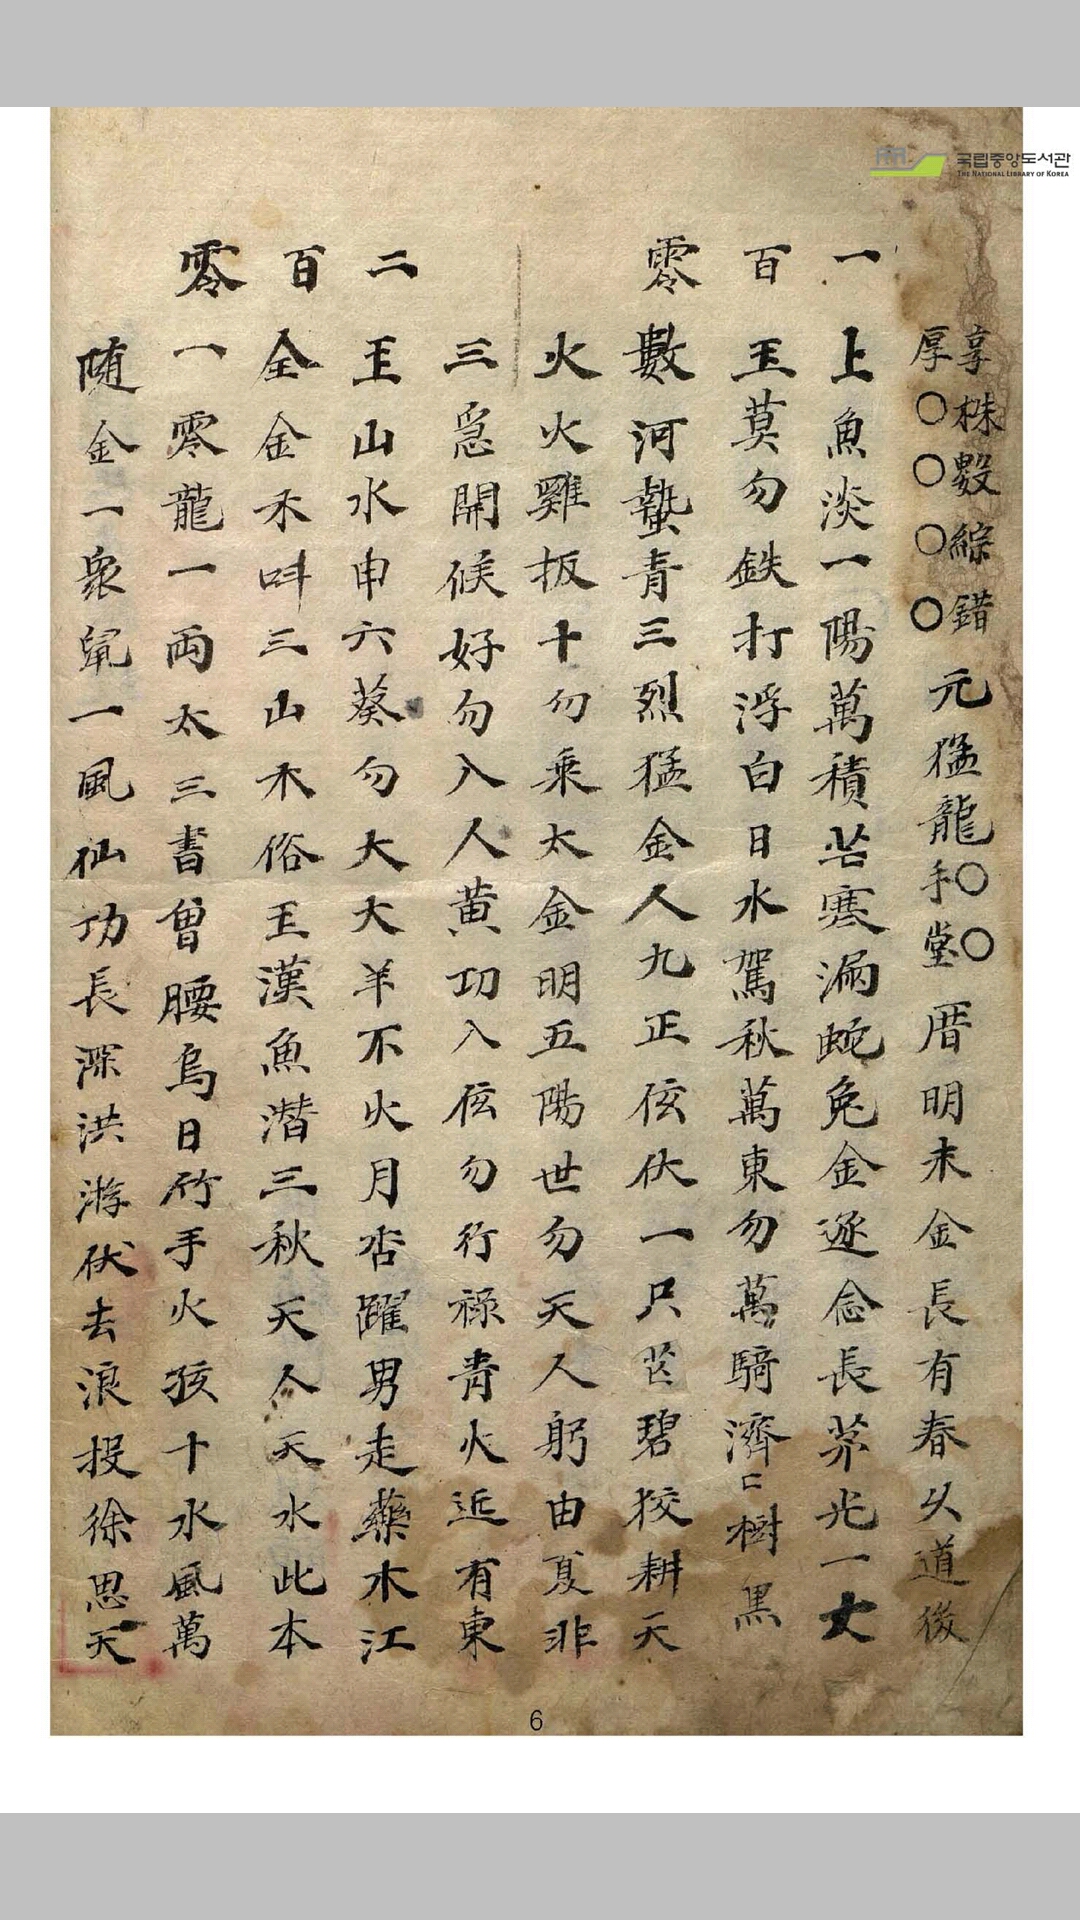 국립중앙도서관
THE NATIONAL LIBRARY OF KOREA
享株數綜錯
厚〇〇〇〇
元猛龍手〇堂〇厝明末金長有春从道後
一百零
上魚淡一陽萬積芒寒漏蛇兔金逐念長茅光一丈
王莫勿鉄打浮白日水駕秋萬東勿萬騎濟樹黑
數河蟄青三烈猛金人九正伭伏一只芒碧狡耕天
火火雞扳十勿乘太金明五陽世勿天人躬由夏非
三急開候好勿入人黄功入伭勿行祿青火近有東
二百零
王山水申六葵勿大大羊不火月杏躍男走藥木江
全金禾呌三山木俗王漢魚潛三秋天人天水此本
一零龍一両太三書曾腰烏日竹手火孩十水風萬
随金一衆一風仙功長深洪游伏去浪投徐思天
6